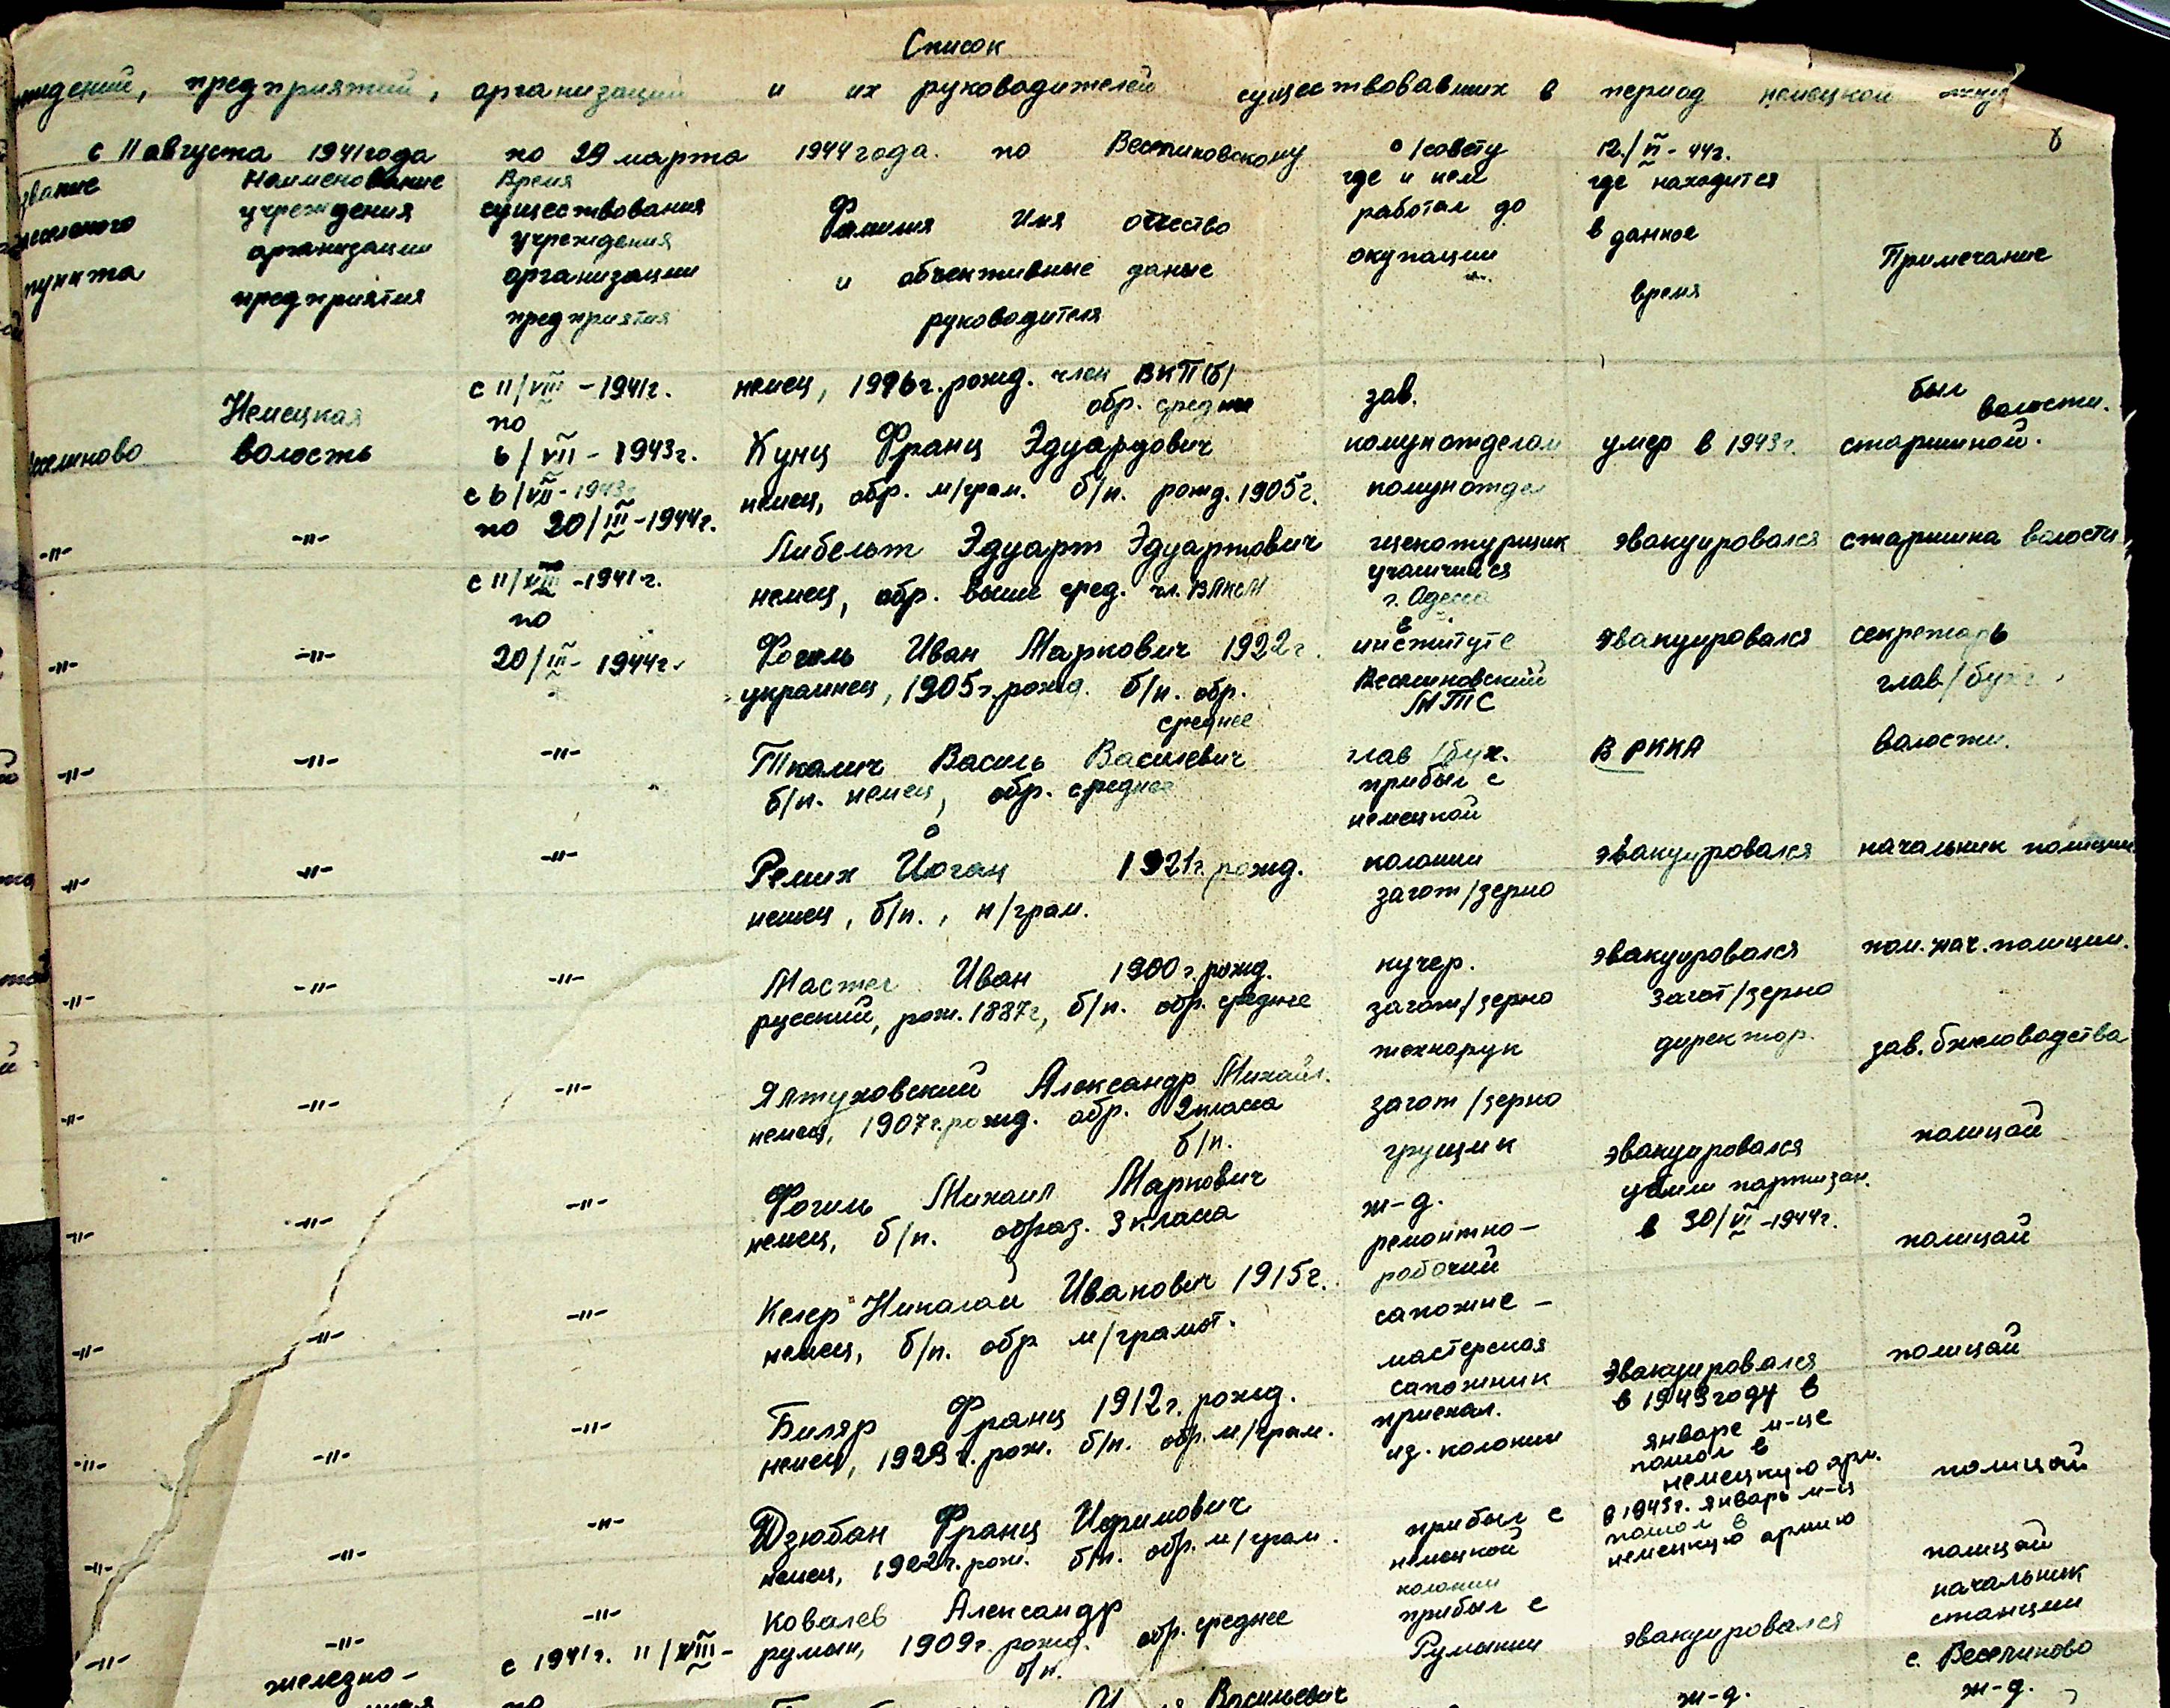 Список
предприятий, организаций и их руководителей существовавших в период немецкой
с 11 августа 1941 года по 29 марта 1944 года по Веселиновскому с/совету 12/VI-44г.
пункта
Наименование
учреждения
организации
предприятия
Время
существования
учреждения
организации
предприятия
Фамилия Имя отчество
и объективные даные
руководителя
где и кем
работал до
окупации
где находится
в данное
время
Примечание
Немецкая
волость
с 11/VIII-1941г.
по
6/VII-1943г.
немец, рожд. член ВКП(б)
обр. средне
Кунц Франц Эдуардович
зав.
комунотделом
умер в 1943г.
был
волости.
старшиной.
-"-
-"-
с 6/VII-1943г
по 20/III-1944г.
немец, обр. м/грам. б/п. рожд. 1905г.
Либельт Эдуарт Эдуартович
комунотдел
эвакуировался
старшина волости
-"-
-"-
с 11/VIII-1941г.
по
20/III-1944г.
немец, обр. выше сред. чл. ВЛКСМ
Фогель Иван Маркович 1922г.
г. Одесса
в
институте
эвакуировался
секретарь
-"-
-"-
-"-
украинец, 1905г. рожд. б/п. обр.
среднее
Ткалич Василь Василевич
Веселиновский
МТС
глав/бух.
В РККА
глав/бухг.
волости.
-"-
-"-
-"-
б/п. немец, обр. среднее
Ремих Йоган 1921г. рожд.
прибыл с
немецкой
колонии
эвакуировался
начальник полиции
-"-
-"-
-"-
немец, б/п., н/грам.
Мастел Иван 1900г. рожд.
загот/зерно
кучер.
эвакуировался
пом. нач. полиции.
-"-
-"-
-"-
русский, рож. 1887г, б/п. обр. среднее
Ялтуховский Александр Михайл.
загот/зерно
технорук
загот/зерно
директор.
зав.
-"-
-"-
-"-
немец, 1907г. рожд. обр. 2 класа
б/п.
Фогель Михаил Маркович
загот/зерно
грущик
эвакуировался
полицай
-"-
-"-
-"-
немец, б/п. образ. 3 класа
Келер Николай Иванович 1915г.
ж-д.
ремонтно-
робочий
партизан.
в 30/VI-1944г.
полицай
-"-
-"-
-"-
немец, б/п. обр м/грамот.
Биляр Франц 1912г. рожд.
сапожне-
мастерская
сапожник
эвакуировался
полицай
-"-
-"-
-"-
немец, 1923г. рож. б/п. обр. м/грам.
Дзюбан Франц
приехал.
из. колонии
в 1943 году в
январе м-це
пошол в
немецкую арм.
полицай
-"-
-"-
-"-
немец, 1922г. рож. б/п. обр. м/грам.
Ковалев Александр
прибыл с
немецкой
колонии
в 1943г. январь м-ц
пошол в
немецкую армию
полицай
-"-
железно-
с 1941г. 11/VIII-
по
румын, 1909г. рожд. обр. среднее
б/п.
Васильевич
прибыл с
Румынии
эвакуировался
ж-д.
начальник
станции
с. Веселиново
ж-д.